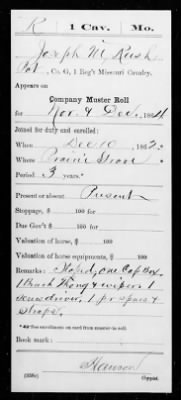 R | 1 Cav. | Mo.
Joseph M. Rush
Pvt., Co. G, 1 Reg't Missouri Cavalry.
Appears on
Company Muster Roll
for Nov. & Dec., 1864
Joined for duty and enrolled:
When Dec 10, 1862.
Where Prairie Grove
Period 3 years.
Present or absent Present
Stoppage, $ 100 for
Due Gov't $ 100 for
Valuation of horse, $ 100
Valuation of horse equipments, $ 100
Remarks: Stopd, one Cap Box
1 Brush Thong & wiper 1
screwdriver, 1 pr spurs &
straps.
*See enrollment on card from muster-in roll.
Book mark:
(358c) Copyist.